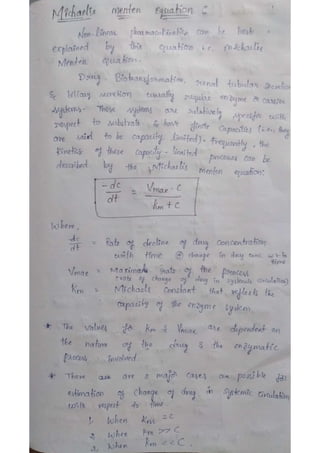 Michaelis menten equation :
Non-linear pharmacokinetics can be best
explained by this equation i.e. michaelis
Menten equation.
Drug Biotransformation, renal tubular secretion
& biliary secretion usually require enzyme or carrier
systems. These systems are relatively specific with
respect to substrate & have finite capacities (i.e. they
are said to be capacity limited). Frequently, the
kinetics of these capacity-limited processes can be
described by the Michaelis menten equation:
-dc/dt = Vmax · C / Km + C
Where,
dc/dt = Rate of decline of drug concentration
with time or change in drug conc w.r.to time
Vmax = maximum rate of the process
rate of change of drug in systemic circulation)
Km = Michaelis Constant that reflects the
capacity of the enzyme system.
* The values for Km & Vmax are dependent on
the nature of the drug & the enzymatic
process involved
* There are 3 major cases are possible for
estimation of change of drug in systemic circulation
with respect to time
1. When Km = C
2. When Km >> C
3. When Km << C.